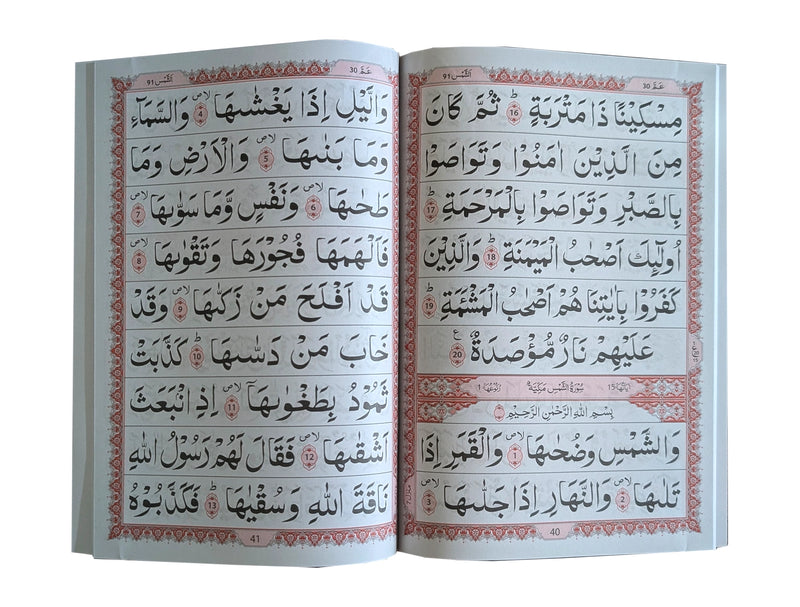 عَمَّ 30
اَلشَّمْس 91
مِسْكِيْنًا ذَا مَتْرَبَةٍ ؕ 16 ثُمَّ كَانَ
مِنَ الَّذِيْنَ اٰمَنُوْا وَتَوَاصَوْا
بِالصَّبْرِ وَتَوَاصَوْا بِالْمَرْحَمَةِ ؕ 17
اُولٰٓئِكَ اَصْحٰبُ الْمَيْمَنَةِ ؕ 18 وَالَّذِيْنَ
كَفَرُوْا بِاٰيٰتِنَا هُمْ اَصْحٰبُ الْمَشْـَٔمَةِ ؕ 19
عَلَيْهِمْ نَارٌ مُّؤْصَدَةٌ ع 20
اٰيَاتُهَا 15 سُوْرَةُ الشَّمْسِ مَكِّيَّةٌ رُكُوْعُهَا 1
بِسْمِ اللّٰهِ الرَّحْمٰنِ الرَّحِيْمِ
وَالشَّمْسِ وَضُحٰىهَا لا ص 1 وَالْقَمَرِ اِذَا
تَلٰىهَا لا ص 2 وَالنَّهَارِ اِذَا جَلّٰىهَا لا ص 3
40
عَمَّ 30
اَلشَّمْس 91
وَالَّيْلِ اِذَا يَغْشٰىهَا لا ص 4 وَالسَّمَآءِ
وَمَا بَنٰىهَا لا ص 5 وَالْاَرْضِ وَمَا
طَحٰىهَا لا ص 6 وَنَفْسٍ وَّمَا سَوّٰىهَا لا ص 7
فَاَلْهَمَهَا فُجُوْرَهَا وَتَقْوٰىهَا لا ص 8
قَدْ اَفْلَحَ مَنْ زَكّٰىهَا لا ص 9 وَقَدْ
خَابَ مَنْ دَسّٰىهَا ؕ 10 كَذَّبَتْ
ثَمُوْدُ بِطَغْوٰىهَا لا ص 11 اِذِ انْۢبَعَثَ
اَشْقٰىهَا لا ص 12 فَقَالَ لَهُمْ رَسُوْلُ اللّٰهِ
نَاقَةَ اللّٰهِ وَسُقْيٰهَا ؕ 13 فَكَذَّبُوْهُ
41